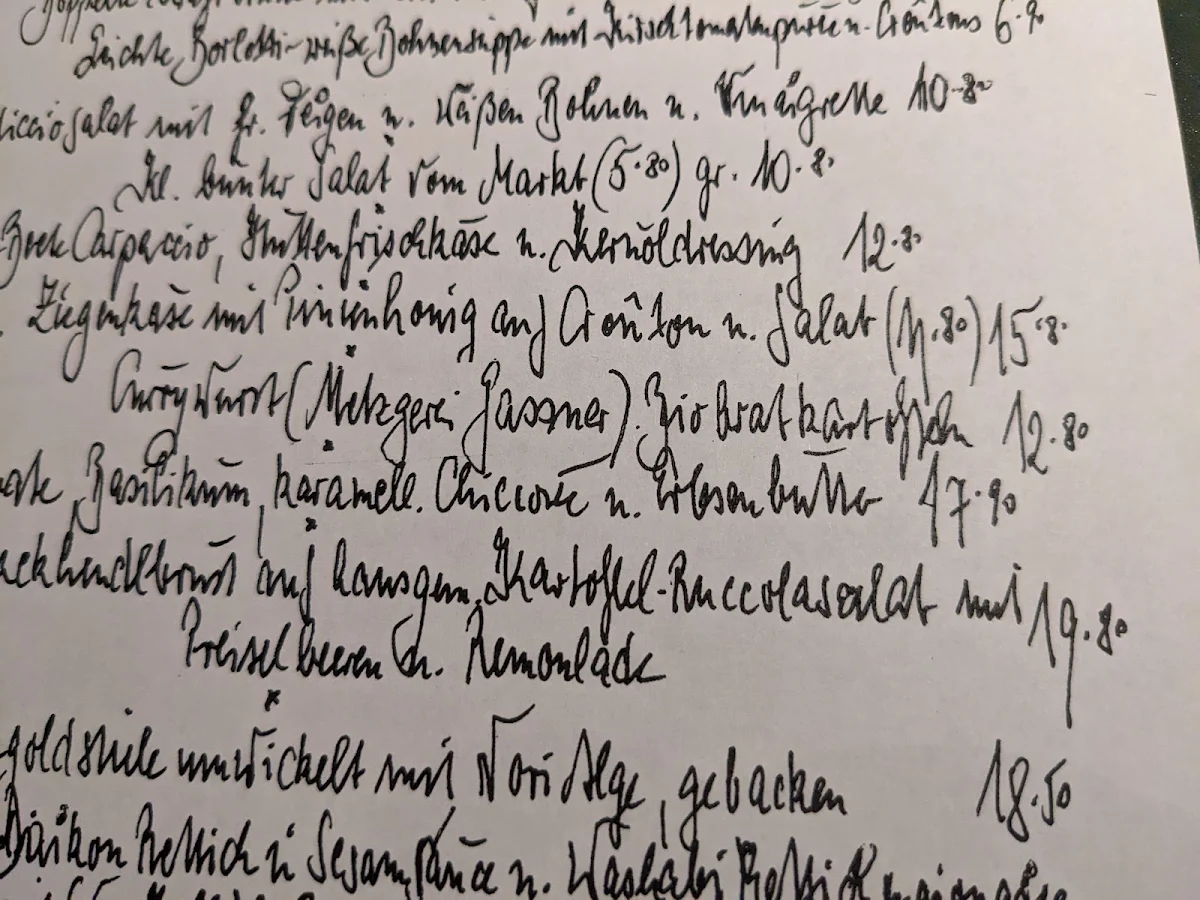 Leichte Borlotti-weiße Bohnensuppe mit Kirschtomatenpüree u. Croûtons 6.90
icciosalat mit fr. Feigen u. Weißen Bohnen u. Vinaigrette 10.80
Kl. bunter Salat vom Markt (5.80) gr. 10.8
Beek Carpaccio, Hüttenfrischkäse u. Kernöldressing 12.80
Ziegenkäse mit Pinienhonig auf Croûton u. Salat (11.80) 15.8
Currywurst (Metzgerei Gassner). Biobratkartoffeln 12.80
ate, Basilikum, karamell. Chiccorée u. Erbsenbutter 17.90
ackhendlbrust auf hausgem. Kartoffel-Ruccolasalat mit 19.80
Preiselbeeren u. Remonlade
goldstiele umwickelt mit Nori Alge, gebacken 18.50
Daikon Rettich in Sesamsauce u. Washabi Rettich